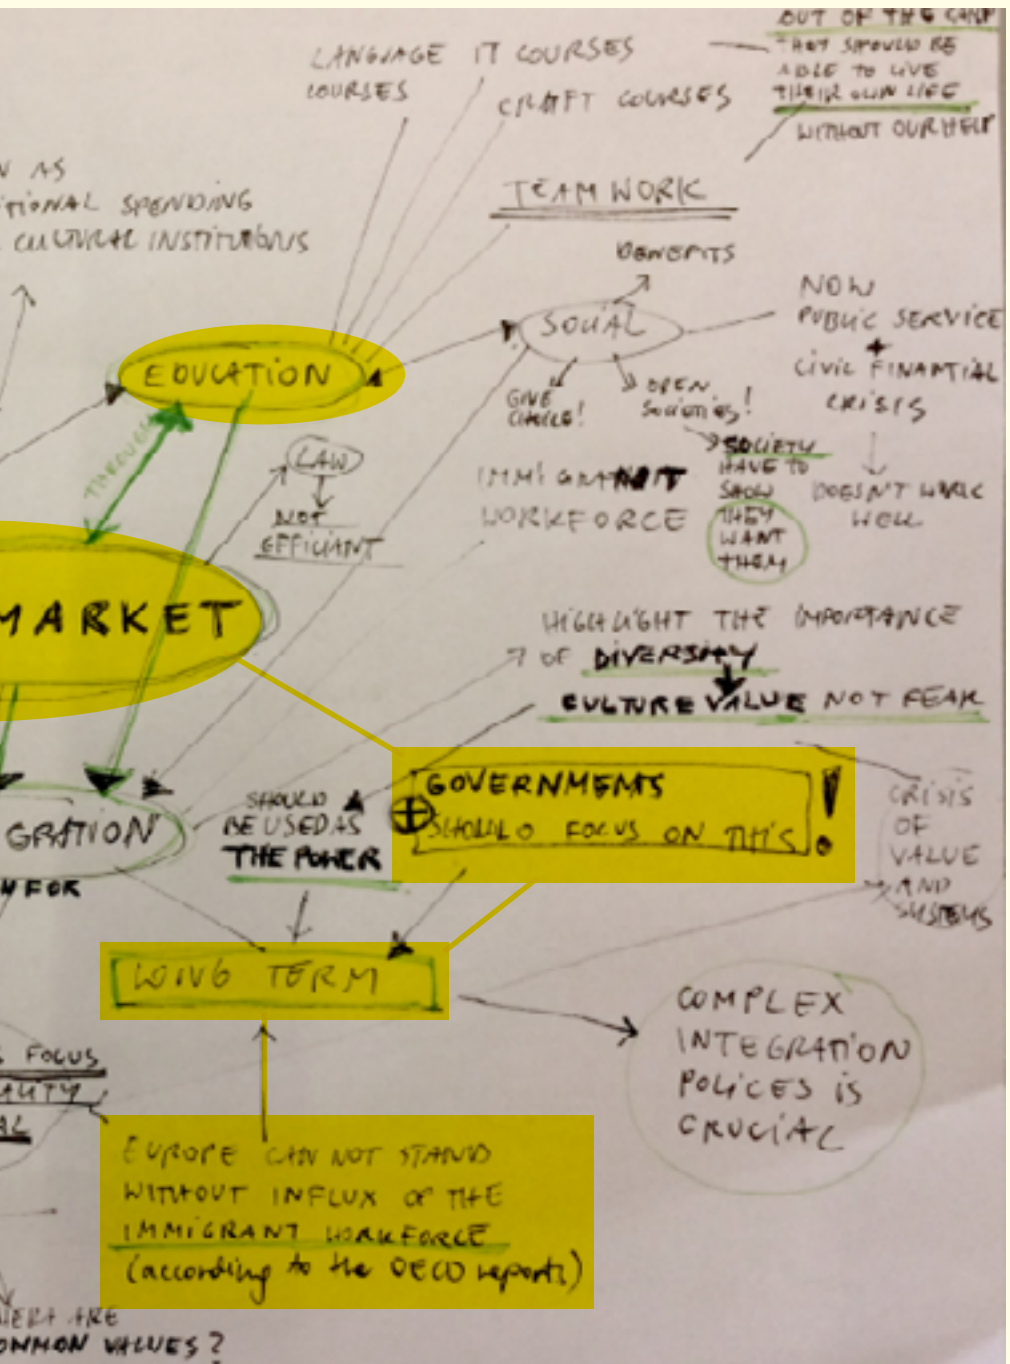 OUT OF THE CAMP
THEY SHOULD BE
ABLE TO LIVE
THEIR OWN LIFE
WITHOUT OUR HELP
LANGUAGE
COURSES
IT COURSES
CRAFT COURSES
TEAM WORK
N AS
TIONAL SPENDING
CULTURAL INSTITUTIONS
BENEFITS
SOCIAL
NOW
PUBLIC SERVICE
+
CIVIC FINANTIAL
CRISIS
DOESN'T WORK
WELL
EDUCATION
GIVE
CHOICE!
OPEN
SOCIETIES!
SOCIETY
HAVE TO
SHOW
THEY
WANT
THEM
THROUGH
LAW
NOT
EFFICIANT
IMMIGRANT
WORKFORCE
MARKET
HIGHLIGHT THE IMPORTANCE
OF DIVERSITY
CULTURE VALUE NOT FEAR
GOVERNMENTS
SHOULD FOCUS ON THIS
!
SHOULD
BE USED AS
THE POWER
CRISIS
OF
VALUE
AND
SYSTEMS
GRATION
FOR
LONG TERM
COMPLEX
INTEGRATION
POLICES IS
CRUCIAL
FOCUS
ALITY
AL
EUROPE CAN NOT STAND
WITHOUT INFLUX OF THE
IMMIGRANT WORKFORCE
(according to the OECD reports)
ARE
OMMON VALUES?